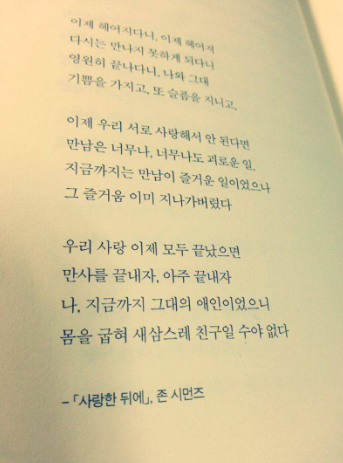 이제 헤어지다니, 이제 헤어져
다시는 만나지 못하게 되다니
영원히 끝나다니, 나와 그대
기쁨을 가지고, 또 슬픔을 지니고.
이제 우리 서로 사랑해서 안 된다면
만남은 너무나, 너무나도 괴로운 일.
지금까지는 만남이 즐거운 일이었으나
그 즐거움 이미 지나가버렸다
우리 사랑 이제 모두 끝났으면
만사를 끝내자, 아주 끝내자
나, 지금까지 그대의 애인이었으니
몸을 굽혀 새삼스레 친구일 수야 없다
–「사랑한 뒤에」, 존 시먼즈